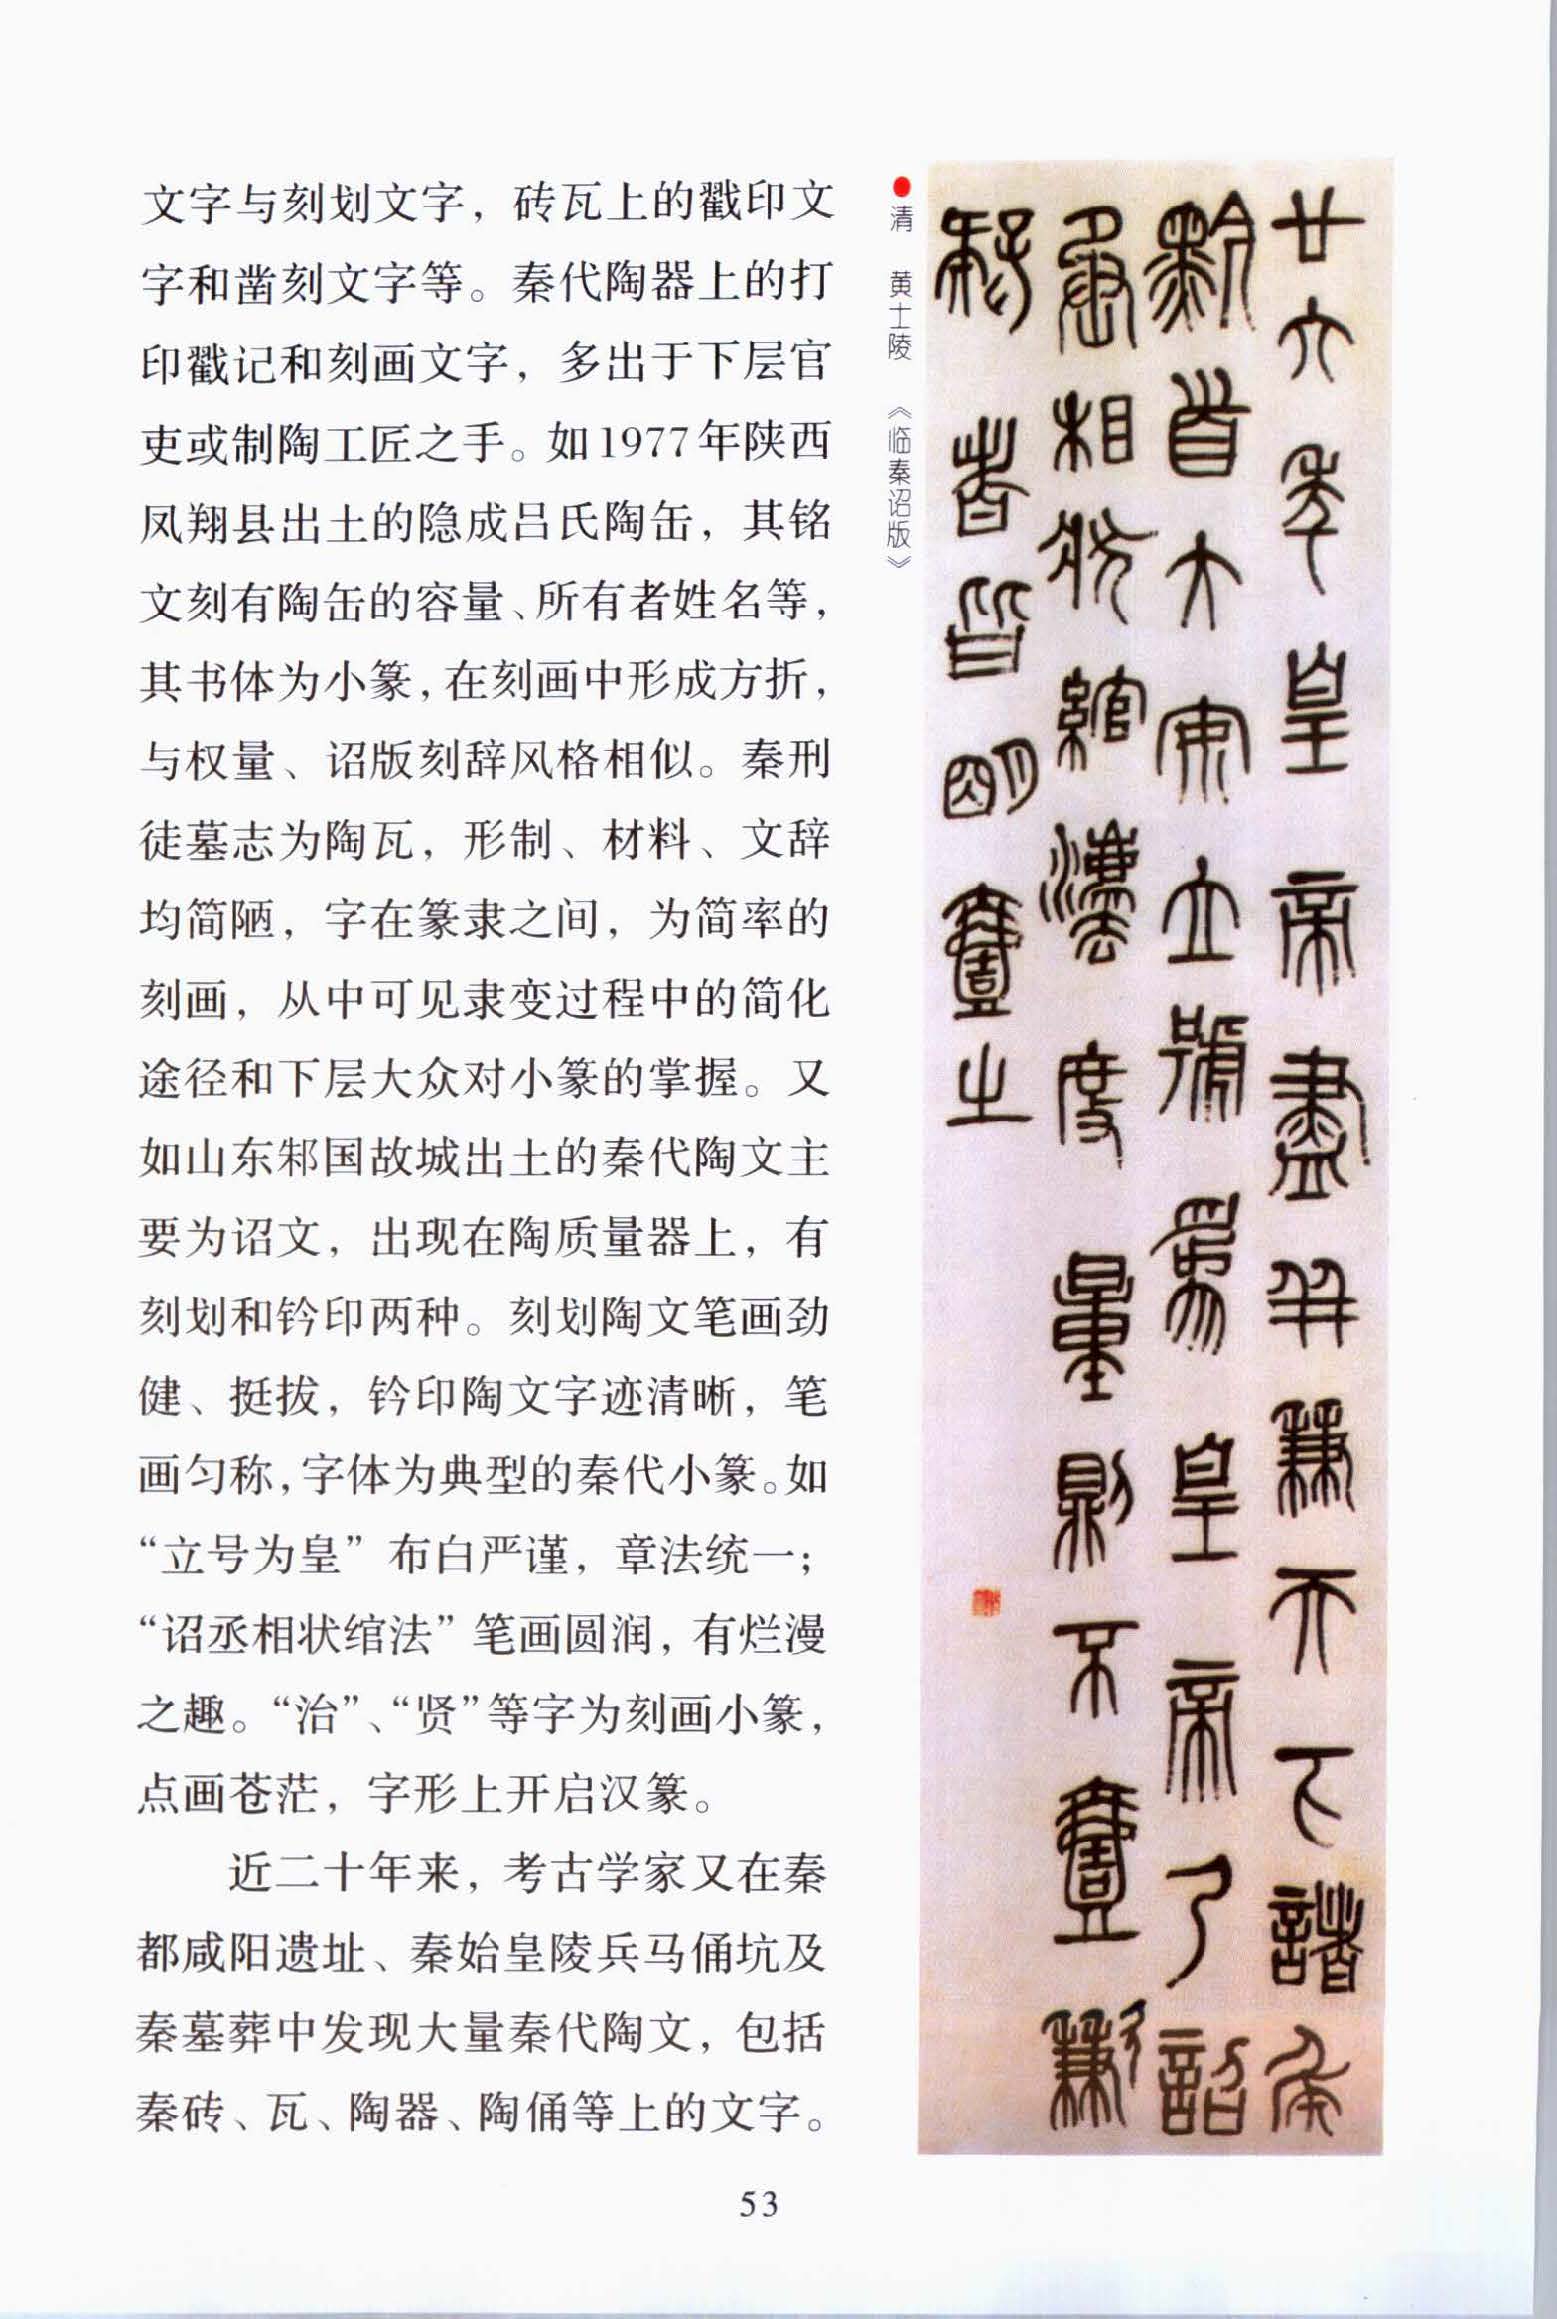 文字与刻划文字，砖瓦上的戳印文
字和凿刻文字等。秦代陶器上的打
印戳记和刻画文字，多出于下层官
吏或制陶工匠之手。如1977年陕西
凤翔县出土的隐成吕氏陶缶，其铭
文刻有陶缶的容量、所有者姓名等，
其书体为小篆，在刻画中形成方折，
与权量、诏版刻辞风格相似。秦刑
徒墓志为陶瓦，形制、材料、文辞
均简陋，字在篆隶之间，为简率的
刻画，从中可见隶变过程中的简化
途径和下层大众对小篆的掌握。又
如山东邾国故城出土的秦代陶文主
要为诏文，出现在陶质量器上，有
刻划和钤印两种。刻划陶文笔画劲
健、挺拔，钤印陶文字迹清晰，笔
画匀称，字体为典型的秦代小篆。如
“立号为皇”布白严谨，章法统一；
“诏丞相状绾法”笔画圆润，有烂漫
之趣。“治”、“贤”等字为刻画小篆，
点画苍茫，字形上开启汉篆。
近二十年来，考古学家又在秦
都咸阳遗址、秦始皇陵兵马俑坑及
秦墓葬中发现大量秦代陶文，包括
秦砖、瓦、陶器、陶俑等上的文字。
●清 黄士陵 《临秦诏版》
廿六年皇帝盡并兼天下諸矦
黔首大安立號爲皇帝乃詔
丞相狀綰灋度量則不壹歉
疑者皆明壹之
53